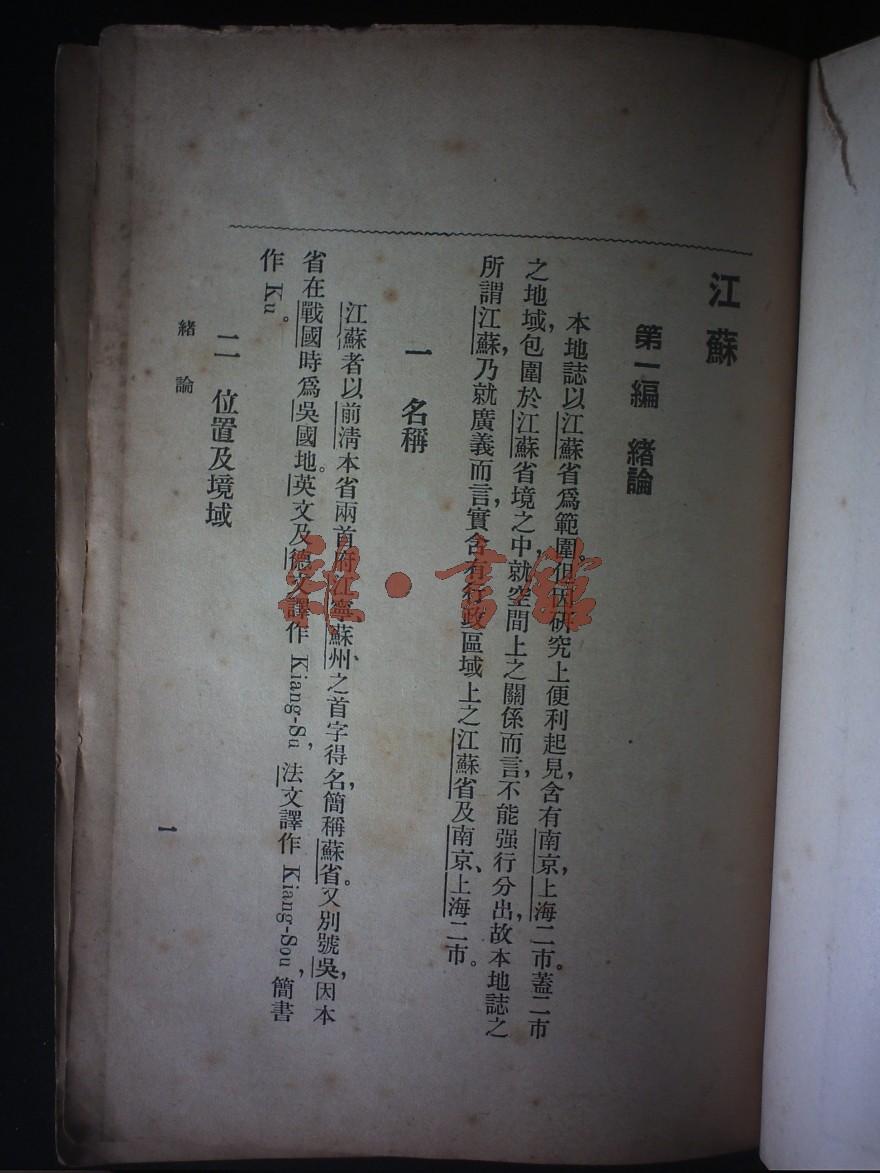 江蘇
第一編　緒論
本地誌以江蘇省爲範圍。但因研究上便利起見，含有南京，上海二市。蓋二市
之地域，包圍於江蘇省境之中，就空間上之關係而言，不能强行分出，故本地誌之
所謂江蘇，乃就廣義而言，實含有行政區域上之江蘇省及南京、上海二市。
一　名稱
江蘇者以前清本省兩首府江寧、蘇州之首字得名，簡稱蘇省。又別號吳，因本
省在戰國時爲吳國地。英文及德文譯作 Kiang-Su，法文譯作 Kiang-Sou，簡書
作 Ku。
二　位置及境域
緒論
一